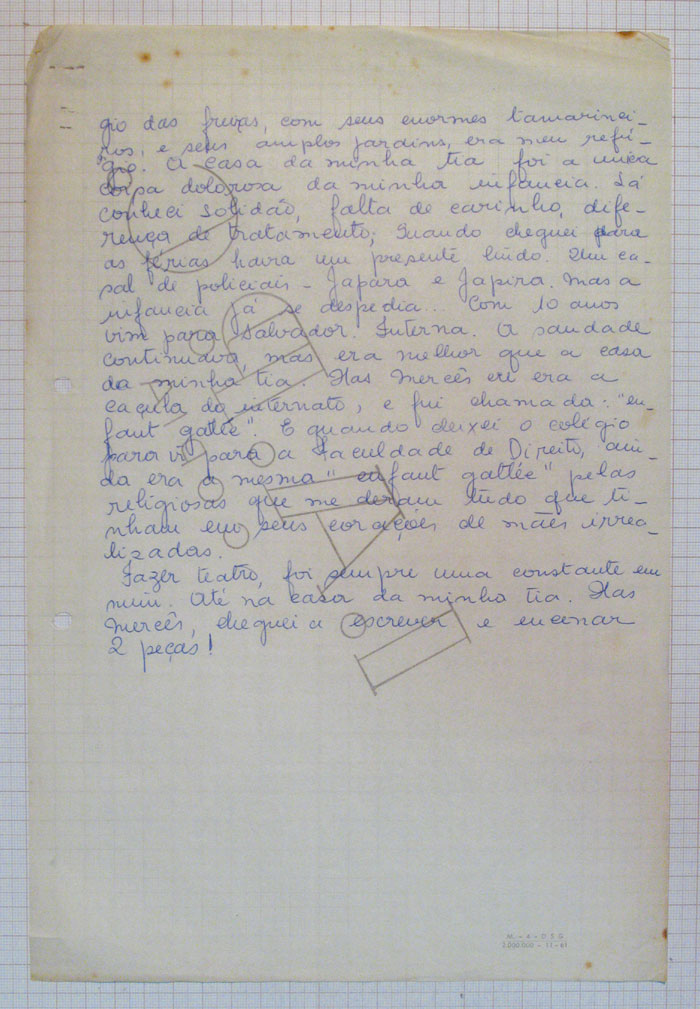 gio das freiras, com seus enormes tamarinei-
ros, e seus amplos jardins, era meu refú-
gio. A casa da minha tia foi a unica
coisa dolorosa da minha infancia. Lá
conheci solidão, falta de carinho, dife-
rença de tratamento; Quando cheguei para
as férias havia um presente lindo. Um ca-
sal de policiais - Japára e Japira. Mas a
infancia já se despedia... Com 10 anos
vim para Salvador. Interna. A saudade
continuava, mas era melhor que a casa
da minha tia. Nas Mercês eu era a
caçula do internato, e fui chamada: "en-
faut gatée". E quando deixei o colégio
para ir para a Faculdade de Direito, ain-
da era a mesma "enfaut gattée" pelas
religiosas que me deram tudo que ti-
nham em seus corações de mães irrea-
lizadas.
Fazer teatro, foi sempre uma constante em
mim. Até na casa da minha tia. Nas
Mercês, cheguei a escrever e encenar
2 peças!
M. - 4 - D S G
2.000.000 - 11-61